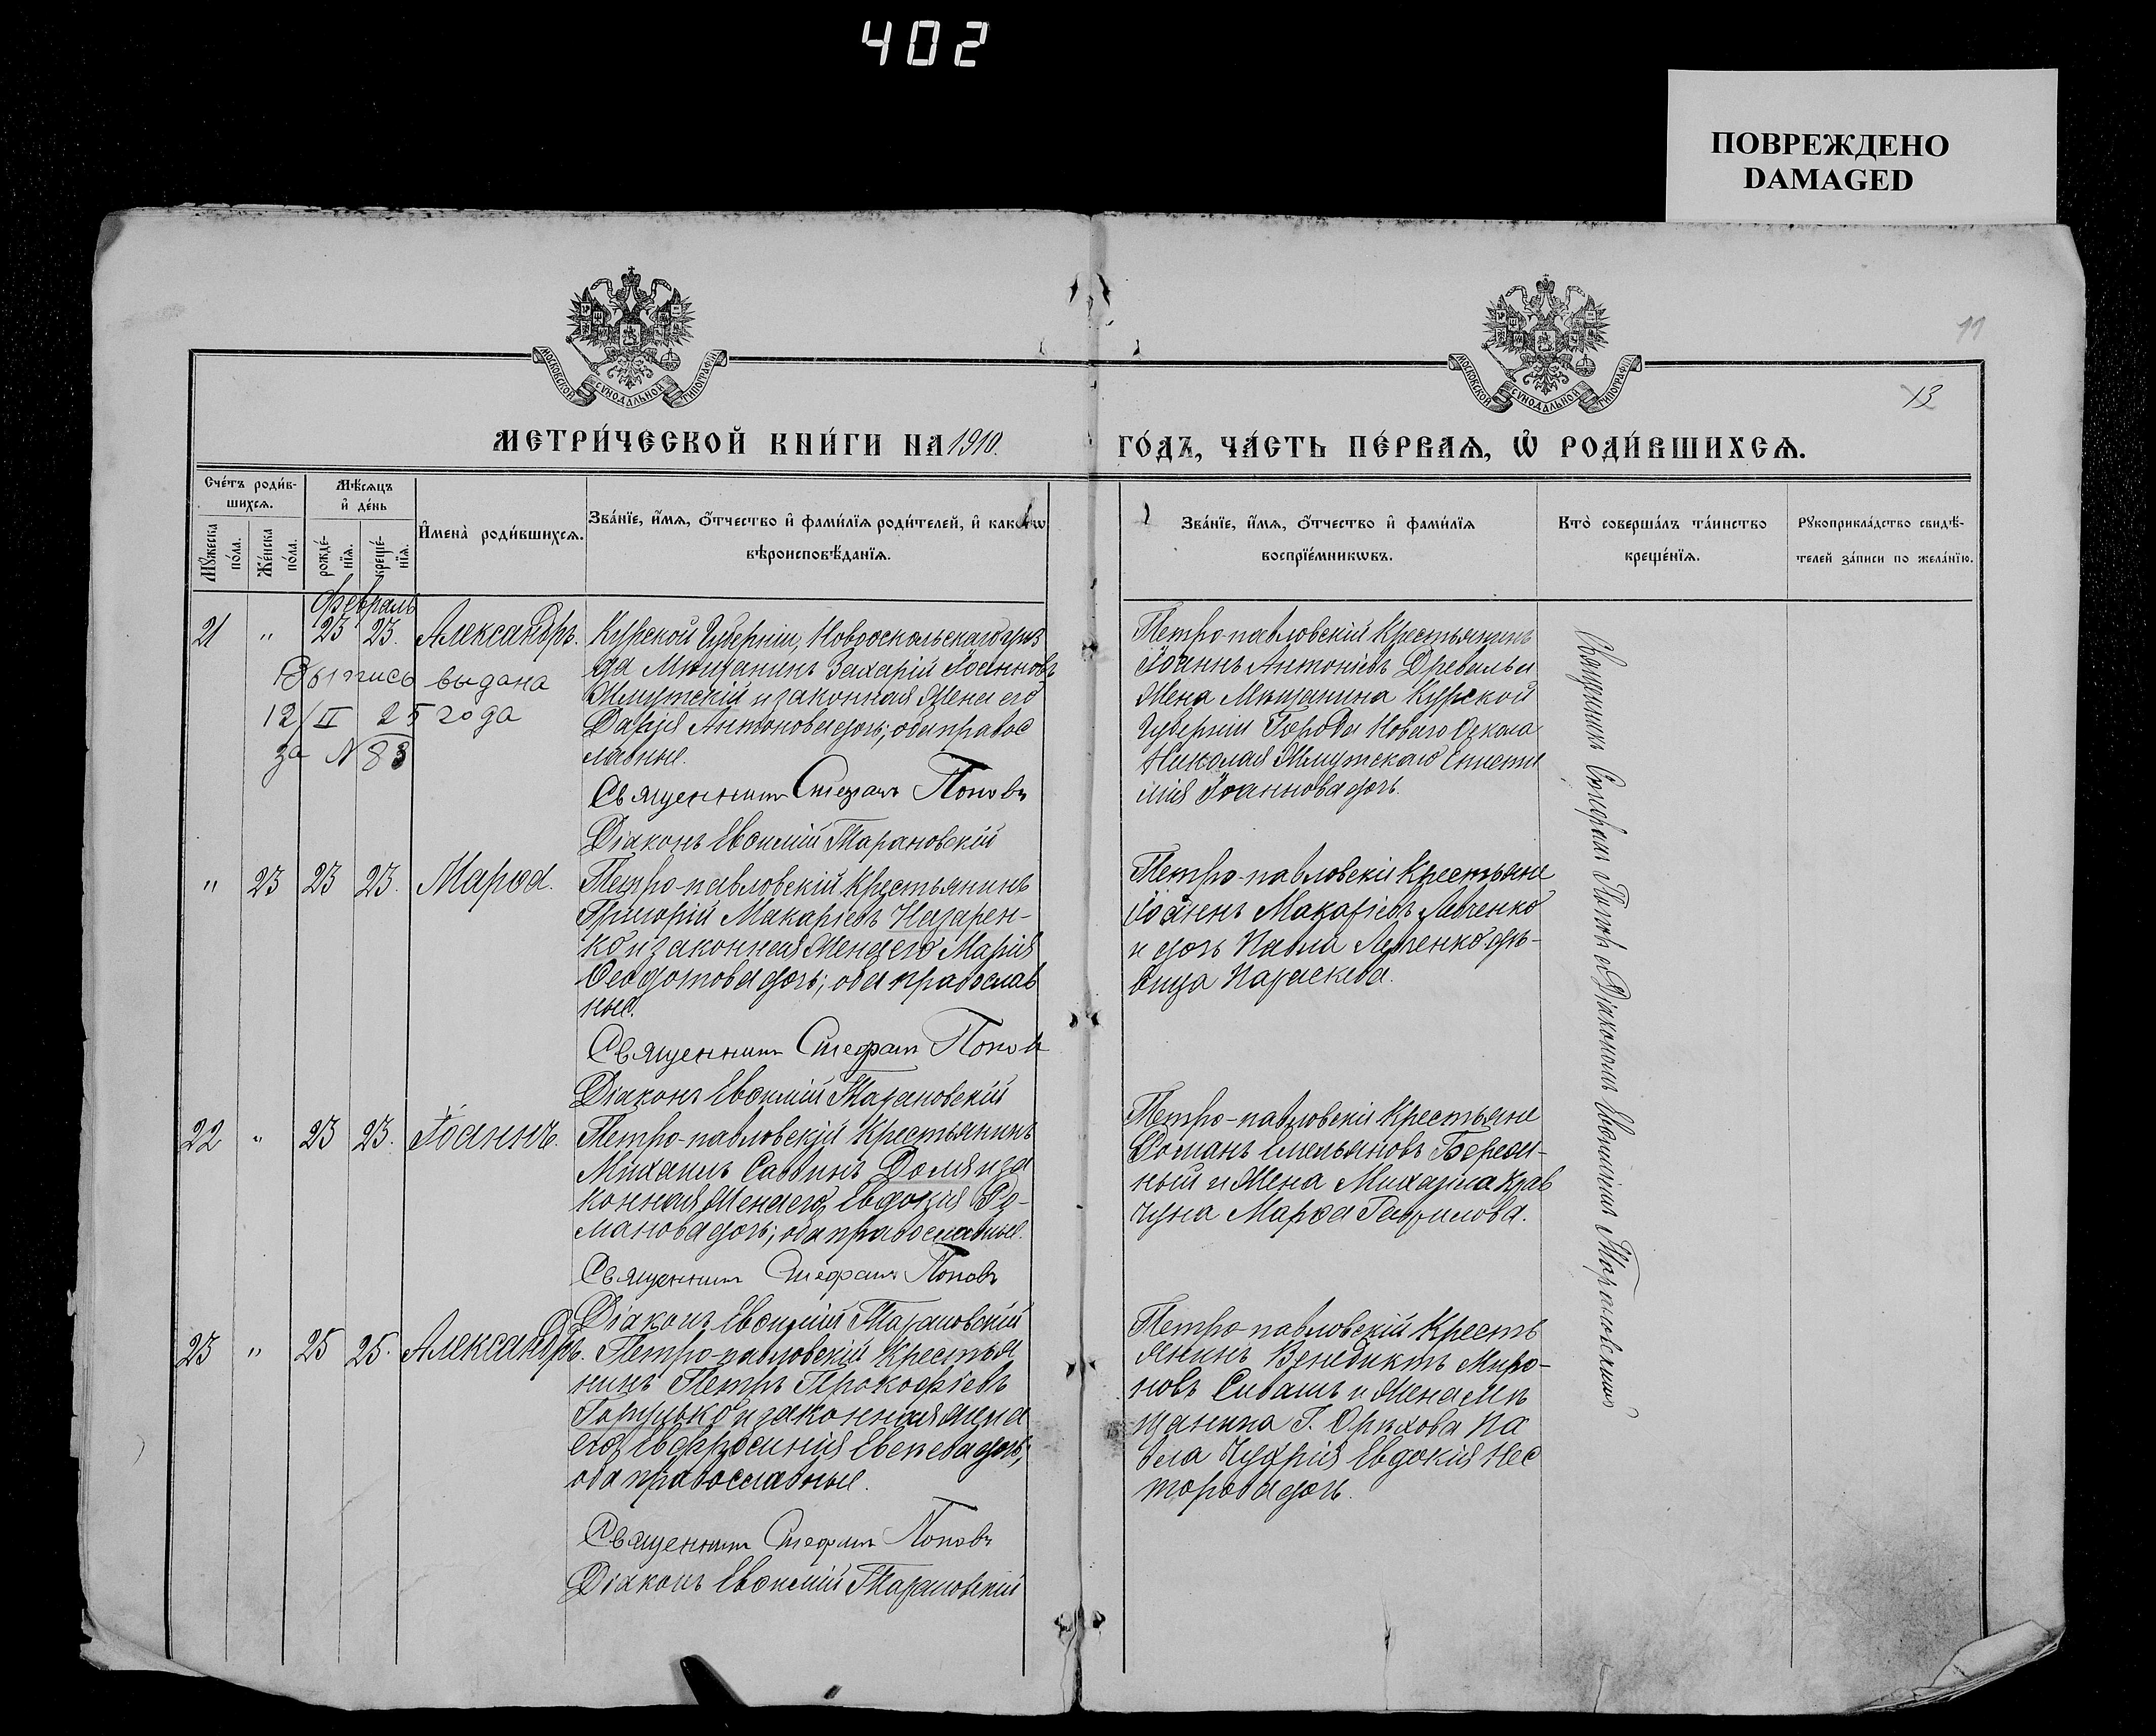 402
ПОВРЕЖДЕНО
DAMAGED
МОСКОВСКОЙ СѴНОДАЛЬНОЙ ТИПОГРАФІИ
МОСКОВСКОЙ СѴНОДАЛЬНОЙ ТИПОГРАФІИ
11
13
МЕТРИ́ЧЕСКОЙ КНИ́ГИ НА 1910.
ГО́ДЪ, ЧА́СТЬ ПЕ́РВАѦ, Ѡ҆ РОДИ́ВШИХСѦ.
Сче́тъ роди́в-
шихсѧ.
Мѣ́сѧцъ
и҆ де́нь
Мꙋ́жеска
по́ла.
Же́нска
по́ла.
рожде́-
нїѧ.
креще́-
нїѧ.
И҆мена̀ роди́вшихсѧ.
Зва́нїе, и҆́мѧ, ѻ҆́тчество и҆ фами́лїѧ роди́телей, и҆ како́гѡ
вѣроисповѣ́данїѧ.
Зва́нїе, и҆́мѧ, ѻ҆́тчество и҆ фами́лїѧ
воспрїе́мникѡвъ.
Кто̀ соверша́лъ та́инство
креще́нїѧ.
Рꙋкоприкла́дство свидѣ́-
телей за́писи по жела́нїю.
Февраль
21 " 23 23. Александръ.
Выпись выдана
12/II 25 года
за N 83
Курской Губерніи, Новооскольскаго уѣз
да Мѣщанинъ Захарій Іоанновъ
и законная Жена его
Дарія Антонова дочь; оба правос
лавные.
Священникъ Стефанъ Поповъ
Діаконъ Евѳимій Тарановскій
Петро-павловскій Крестьянинъ
Іоаннъ Антоніевъ Древаль и
Жена Мѣщанина Курской
Губерніи Города Новаго Оскола
Николая
Іоаннова дочь.
Священникъ Стефанъ Поповъ съ Діакономъ Евѳиміемъ Тарановскимъ
" 23 23 23. Марѳа.
Петро-павловскій Крестьянинъ
Григорій Макаріевъ Назарен-
ко и законная Жена его Марія
Ѳеодотова дочь; оба православ
ные.
Священникъ Стефанъ Поповъ
Діаконъ Евѳимій Тарановскій
Петро-павловскіе Крестьяне
Іоаннъ Макаріевъ Левченко
и дочь Павла дѣ-
вица Параскева.
22 " 23 23. Іоаннъ.
Петро-павловскій Крестьянинъ
Михаилъ Саввинъ Доля и за
конная Жена его Евдокія Ро-
манова дочь; оба православные.
Священникъ Стефанъ Поповъ
Діаконъ Евѳимій Тарановскій
Петро-павловскіе Крестьяне
Романъ Емельяновъ
ный и Жена Михаила Крав
чуна Марѳа Гаврилова.
23 " 25 25. Александръ.
Петро-павловскій Крестья
нинъ Петръ Прокофіевъ
Горусько и законная жена
его Евфросинія дочь;
оба православные.
Священникъ Стефанъ Поповъ
Діаконъ Евѳимій Тарановскій
Петро-павловскій Кресть
янинъ Венедиктъ Миро-
новъ Сивашъ и Жена мѣ
щанина Г. Орѣхова Па
вла Чухрія Евдокія Нес
торова дочь.